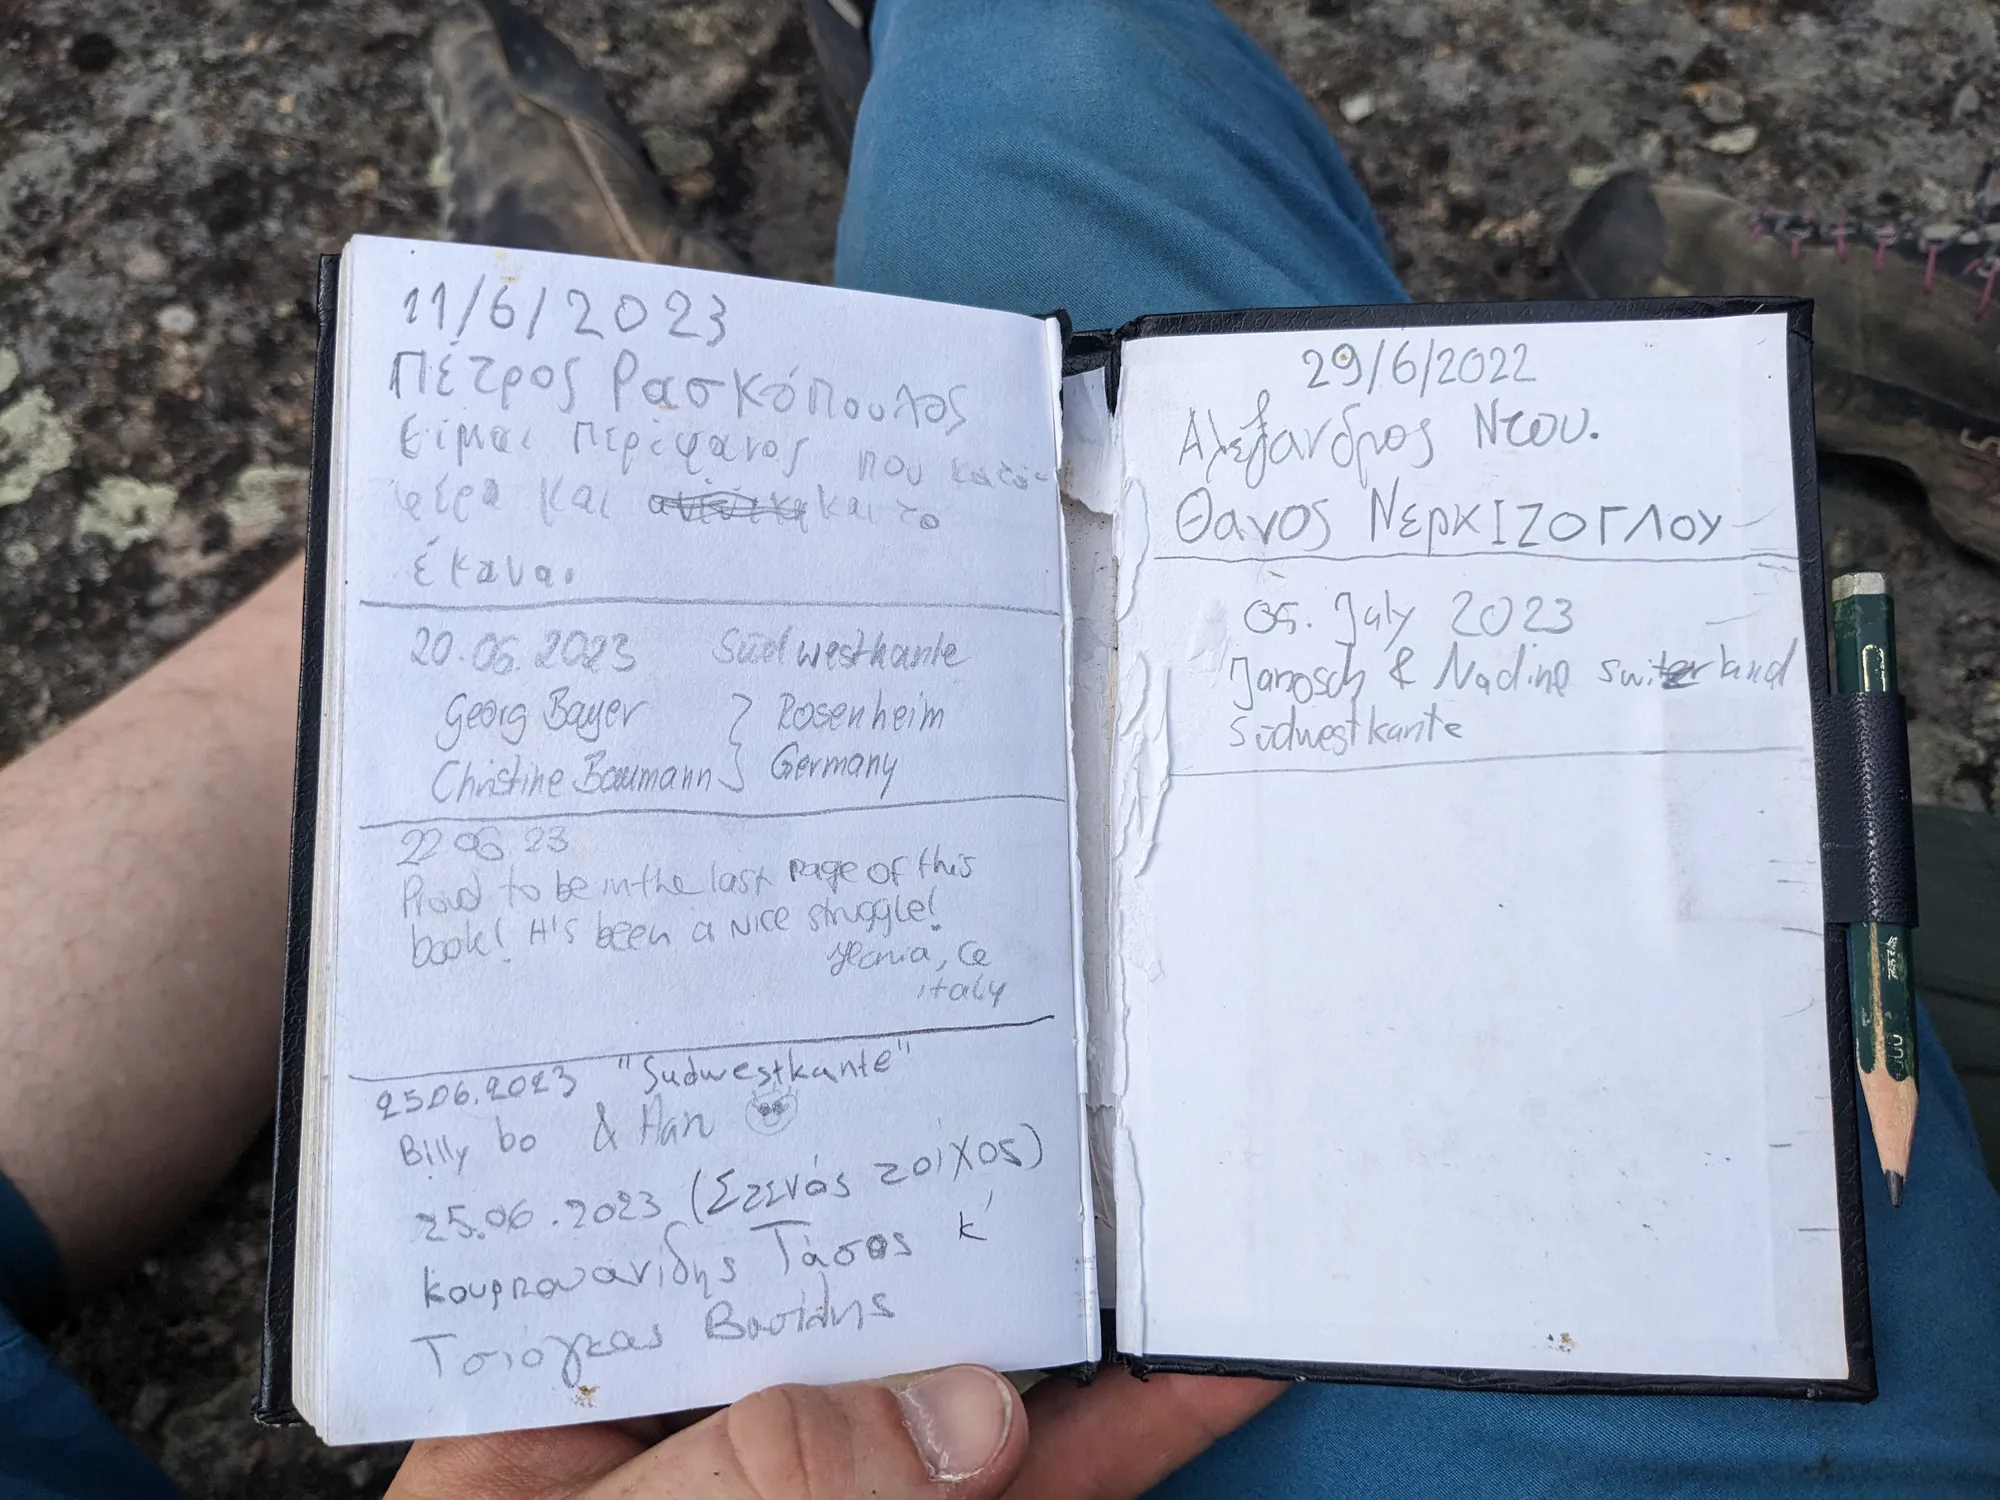 11/6/2023
Πέτρος Ρασκόπουλος
είμαι περίφανος που κατά-
φερα και και το
έκανα.
20.06.2023 Südwestkante
Georg Bayer } Rosenheim
Christine Baumann } Germany
22 06 23
Proud to be in the last page of this
book! It's been a nice struggle!
Ilenia, Ce
italy
25.06.2023 "Sudwestkante"
Billy bo &
25.06.2023 (Στενός τοίχος)
Κουρπουανίδης Τάσος κ'
Τσιόγκας Βασίλης
29/6/2022
Αλεξανδρος Ντου.
Θανος ΝερκΙΖΟΓΛΟΥ
05. July 2023
Janosch & Nadine Switzerland
Südwestkante